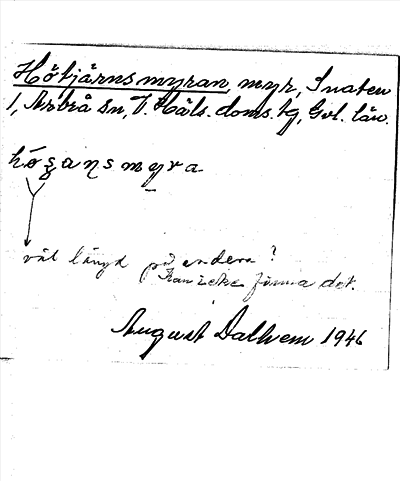 Hötjärnsmyran, myr, Snaten
1, Arbrå sn, V. Häls. doms. tg, Gvl. län.
hǿʒaṇsmyra
väl längd på endera?
Kan icke finna det.
August Dalhem 1946